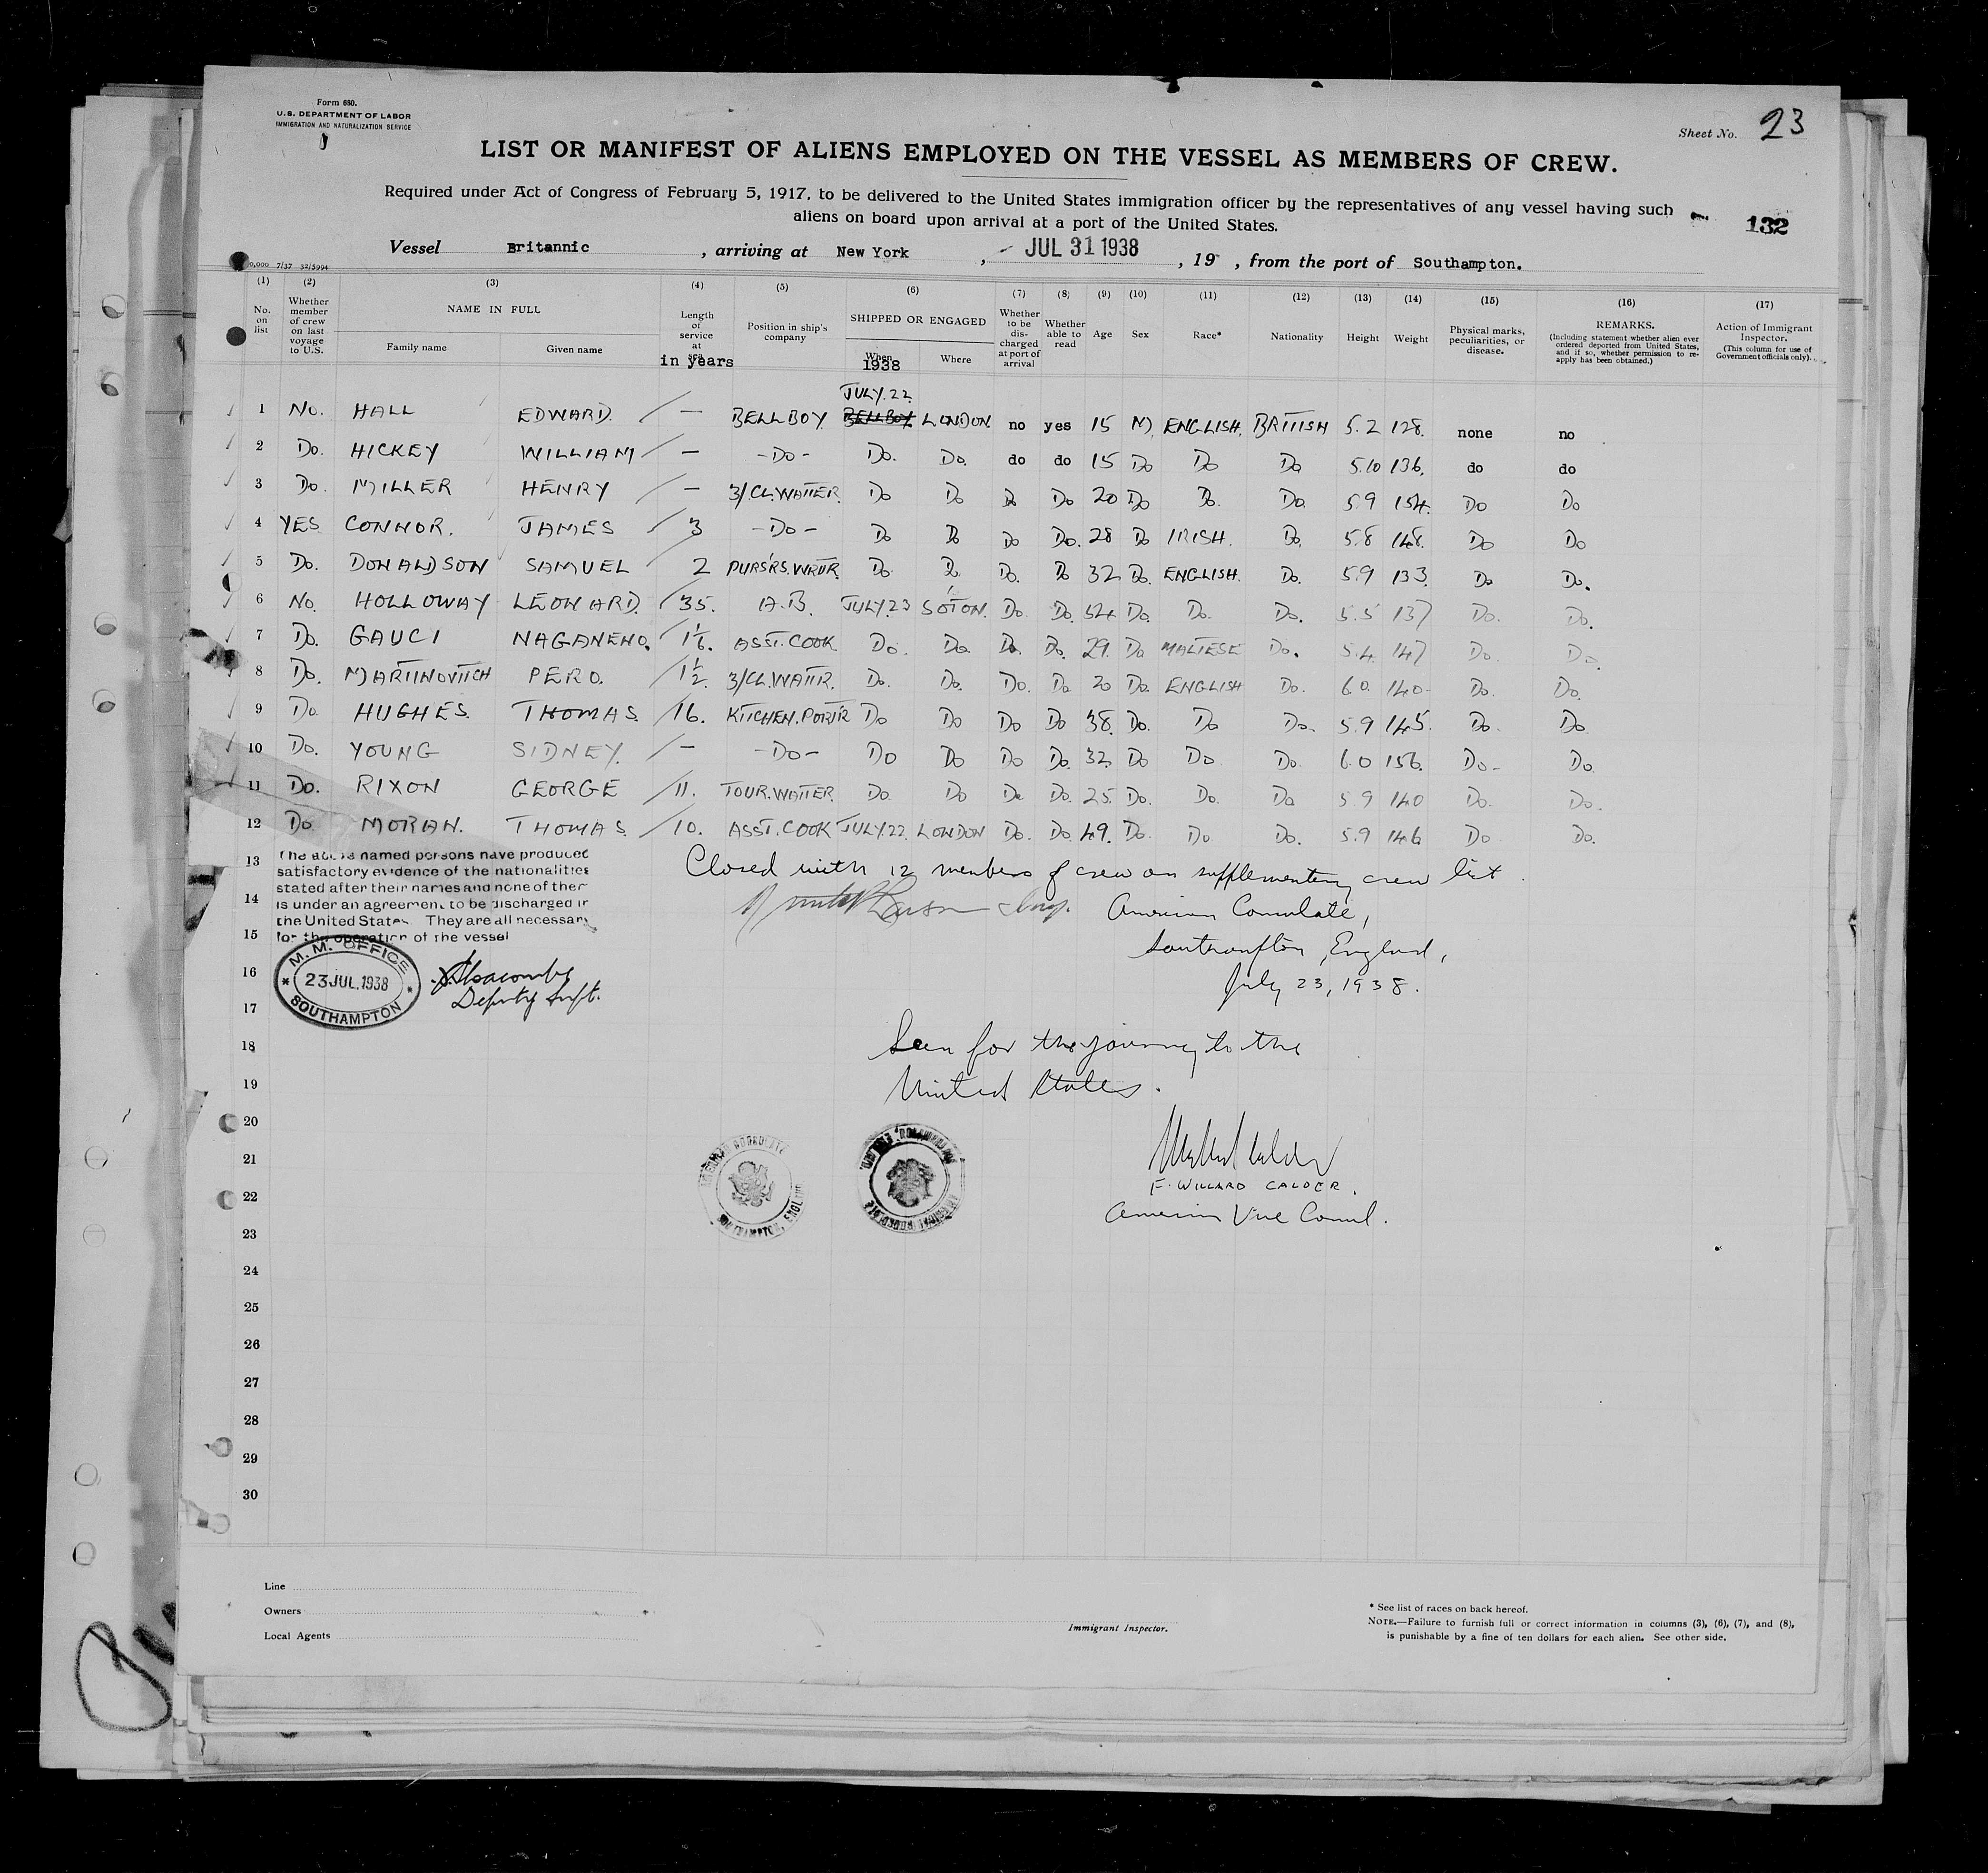 Form 680.
U.S. DEPARTMENT OF LABOR
IMMIGRATION AND NATURALIZATION SERVICE
Sheet No. 23
LIST OR MANIFEST OF ALIENS EMPLOYED ON THE VESSEL AS MEMBERS OF CREW.
Required under Act of Congress of February 5, 1917, to be delivered to the United States immigration officer by the representatives of any vessel having such
aliens on board upon arrival at a port of the United States.
132
Vessel Britannic , arriving at New York , JUL 31 1938 , 19 , from the port of Southampton.
0,000 7/37 32/5994
(1) (2) (3) (4) (5) (6) (7) (8) (9) (10) (11) (12) (13) (14) (15) (16) (17)
No. on list
Whether member of crew on last voyage to U.S.
NAME IN FULL
Family name
Given name
Length of service at sea
in years
Position in ship's company
SHIPPED OR ENGAGED
When
1938
Where
Whether to be discharged at port of arrival
Whether able to read
Age
Sex
Race*
Nationality
Height
Weight
Physical marks, peculiarities, or disease.
REMARKS.
(Including statement whether alien ever ordered deported from United States, and if so, whether permission to reapply has been obtained.)
Action of Immigrant Inspector.
(This column for use of Government officials only)
JULY.22.
1 No. HALL EDWARD. — BELL BOY. BELL BOY LONDON no yes 15 M. ENGLISH. BRITISH 5.2 128. none no
2 Do. HICKEY WILLIAM — -Do- Do. Do. do do 15 Do Do Do 5.10 136. do do
3 Do. MILLER HENRY — 3/CL.WAITER. Do Do Do Do 20 Do Do. Do. 5.9 154. Do Do
4 YES CONNOR. JAMES 3 -Do- Do Do Do Do. 28 Do IRISH. Do. 5.8 148. Do Do
5 Do. DONALDSON SAMUEL 2 PURS'RS.WRTR. Do. Do. Do. Do 32 Do. ENGLISH. Do. 5.9 133. Do Do.
6 No. HOLLOWAY LEONARD. 35. A.B. JULY.23 SOTON. Do Do. 54 Do. Do. Do. 5.5 137 Do. Do.
7 Do. GAUCI NAGANENO. ASST. COOK Do. Do. Do. Do. 29. Do MALTESE Do. 5.4. 147 Do. Do.
8 Do. MARTINOVITCH PERO. 1½. 3/CL.WAITR. Do. Do. Do. Do 20 Do. ENGLISH Do. 6.0. 140. Do. Do.
9 Do HUGHES. THOMAS. 16. KITCHEN.PORTR Do Do Do Do 38. Do. Do Do. 5.9 145. Do. Do
10 Do. YOUNG SIDNEY. — -Do- Do Do Do Do. 32. Do Do Do 6.0 156. Do- Do
11 Do. RIXON GEORGE 11. TOUR.WAITER. Do. Do Do Do. 25. Do. Do. Do 5.9 140 Do. Do.
12 Do MORAN. THOMAS. 10. ASST. COOK JULY.22. LONDON Do. Do. 49. Do. Do. Do. 5.9 146 Do Do.
13
14
15
16
17
18
19
20
21
22
23
24
25
26
27
28
29
30
The above named persons have produced
satisfactory evidence of the nationalities
stated after their names and none of them
is under an agreement to be discharged in
the United States They are all necessary
for the operation of the vessel
M. M. OFFICE
23 JUL. 1938
SOUTHAMPTON
Deputy Supt.
Closed with 12 members of crew on supplementary crew list.
American Consulate,
Southampton, England,
July 23, 1938.
Seen for the journey to the
United States.
F. WILLARD CALDER.
American Vice Consul.
Line
Owners
Local Agents
Immigrant Inspector.
* See list of races on back hereof.
NOTE.—Failure to furnish full or correct information in columns (3), (6), (7), and (8),
is punishable by a fine of ten dollars for each alien. See other side.